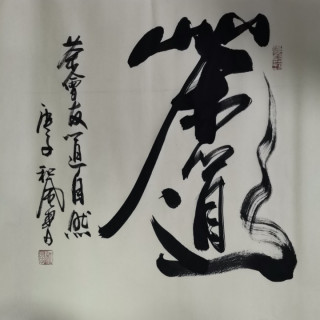 茶道
茶會友道自然
庚子 和風